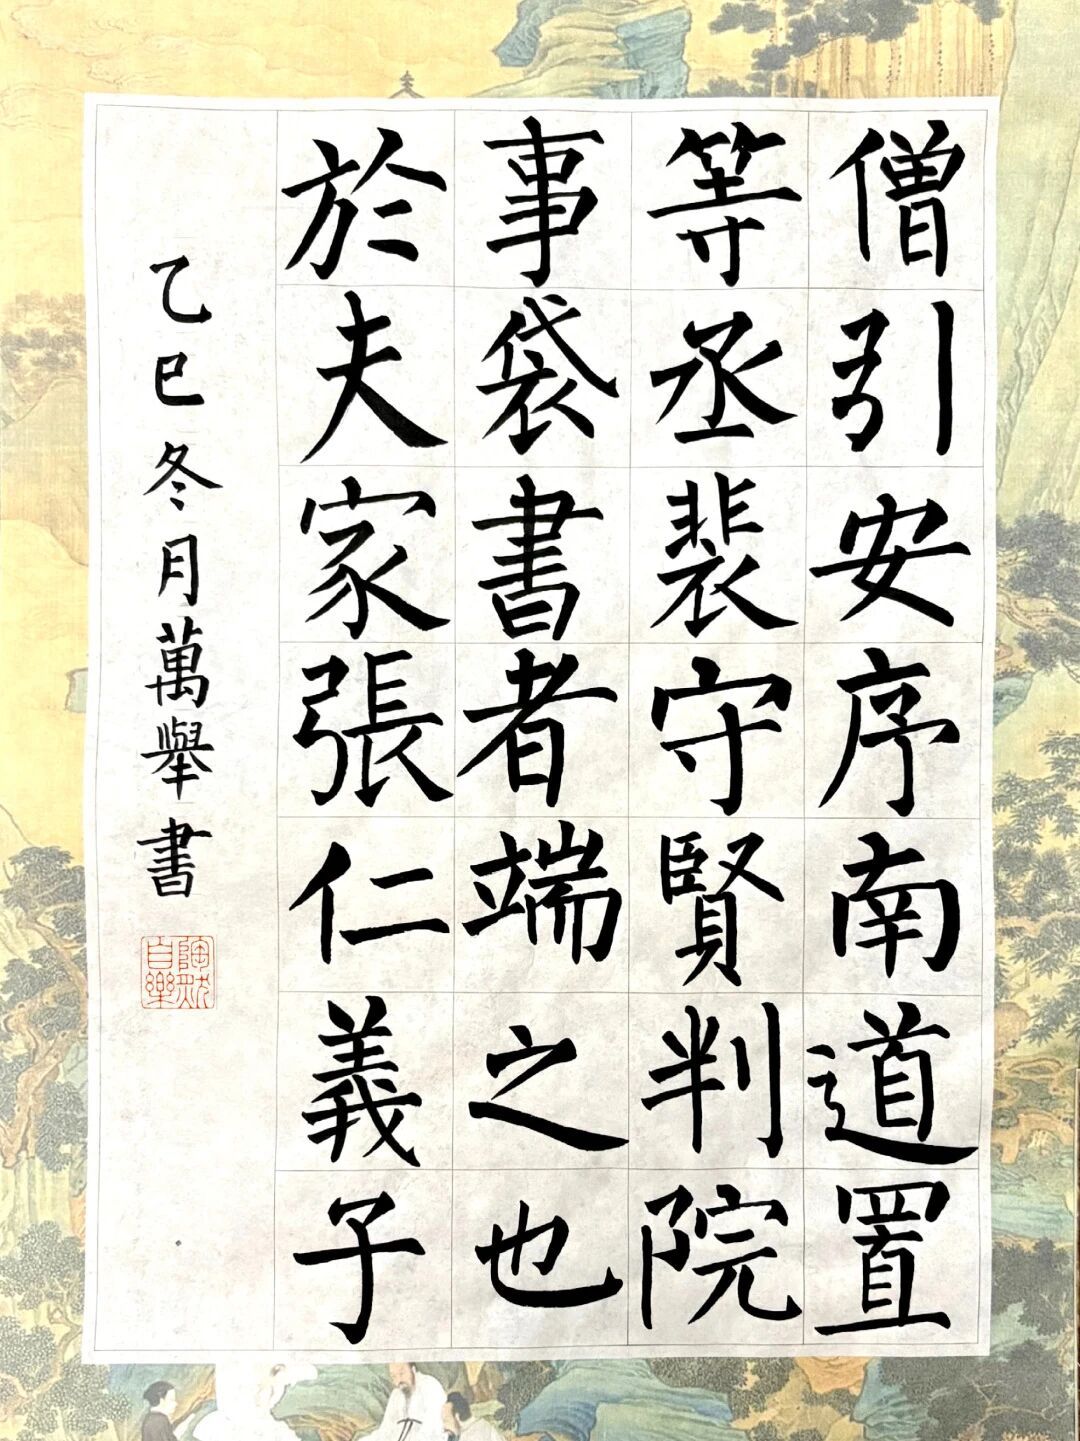 僧引安序南道置
等丞裴守賢判院
事袋書者端之也
於夫家張仁義子
乙巳冬月萬舉書
陶然自樂